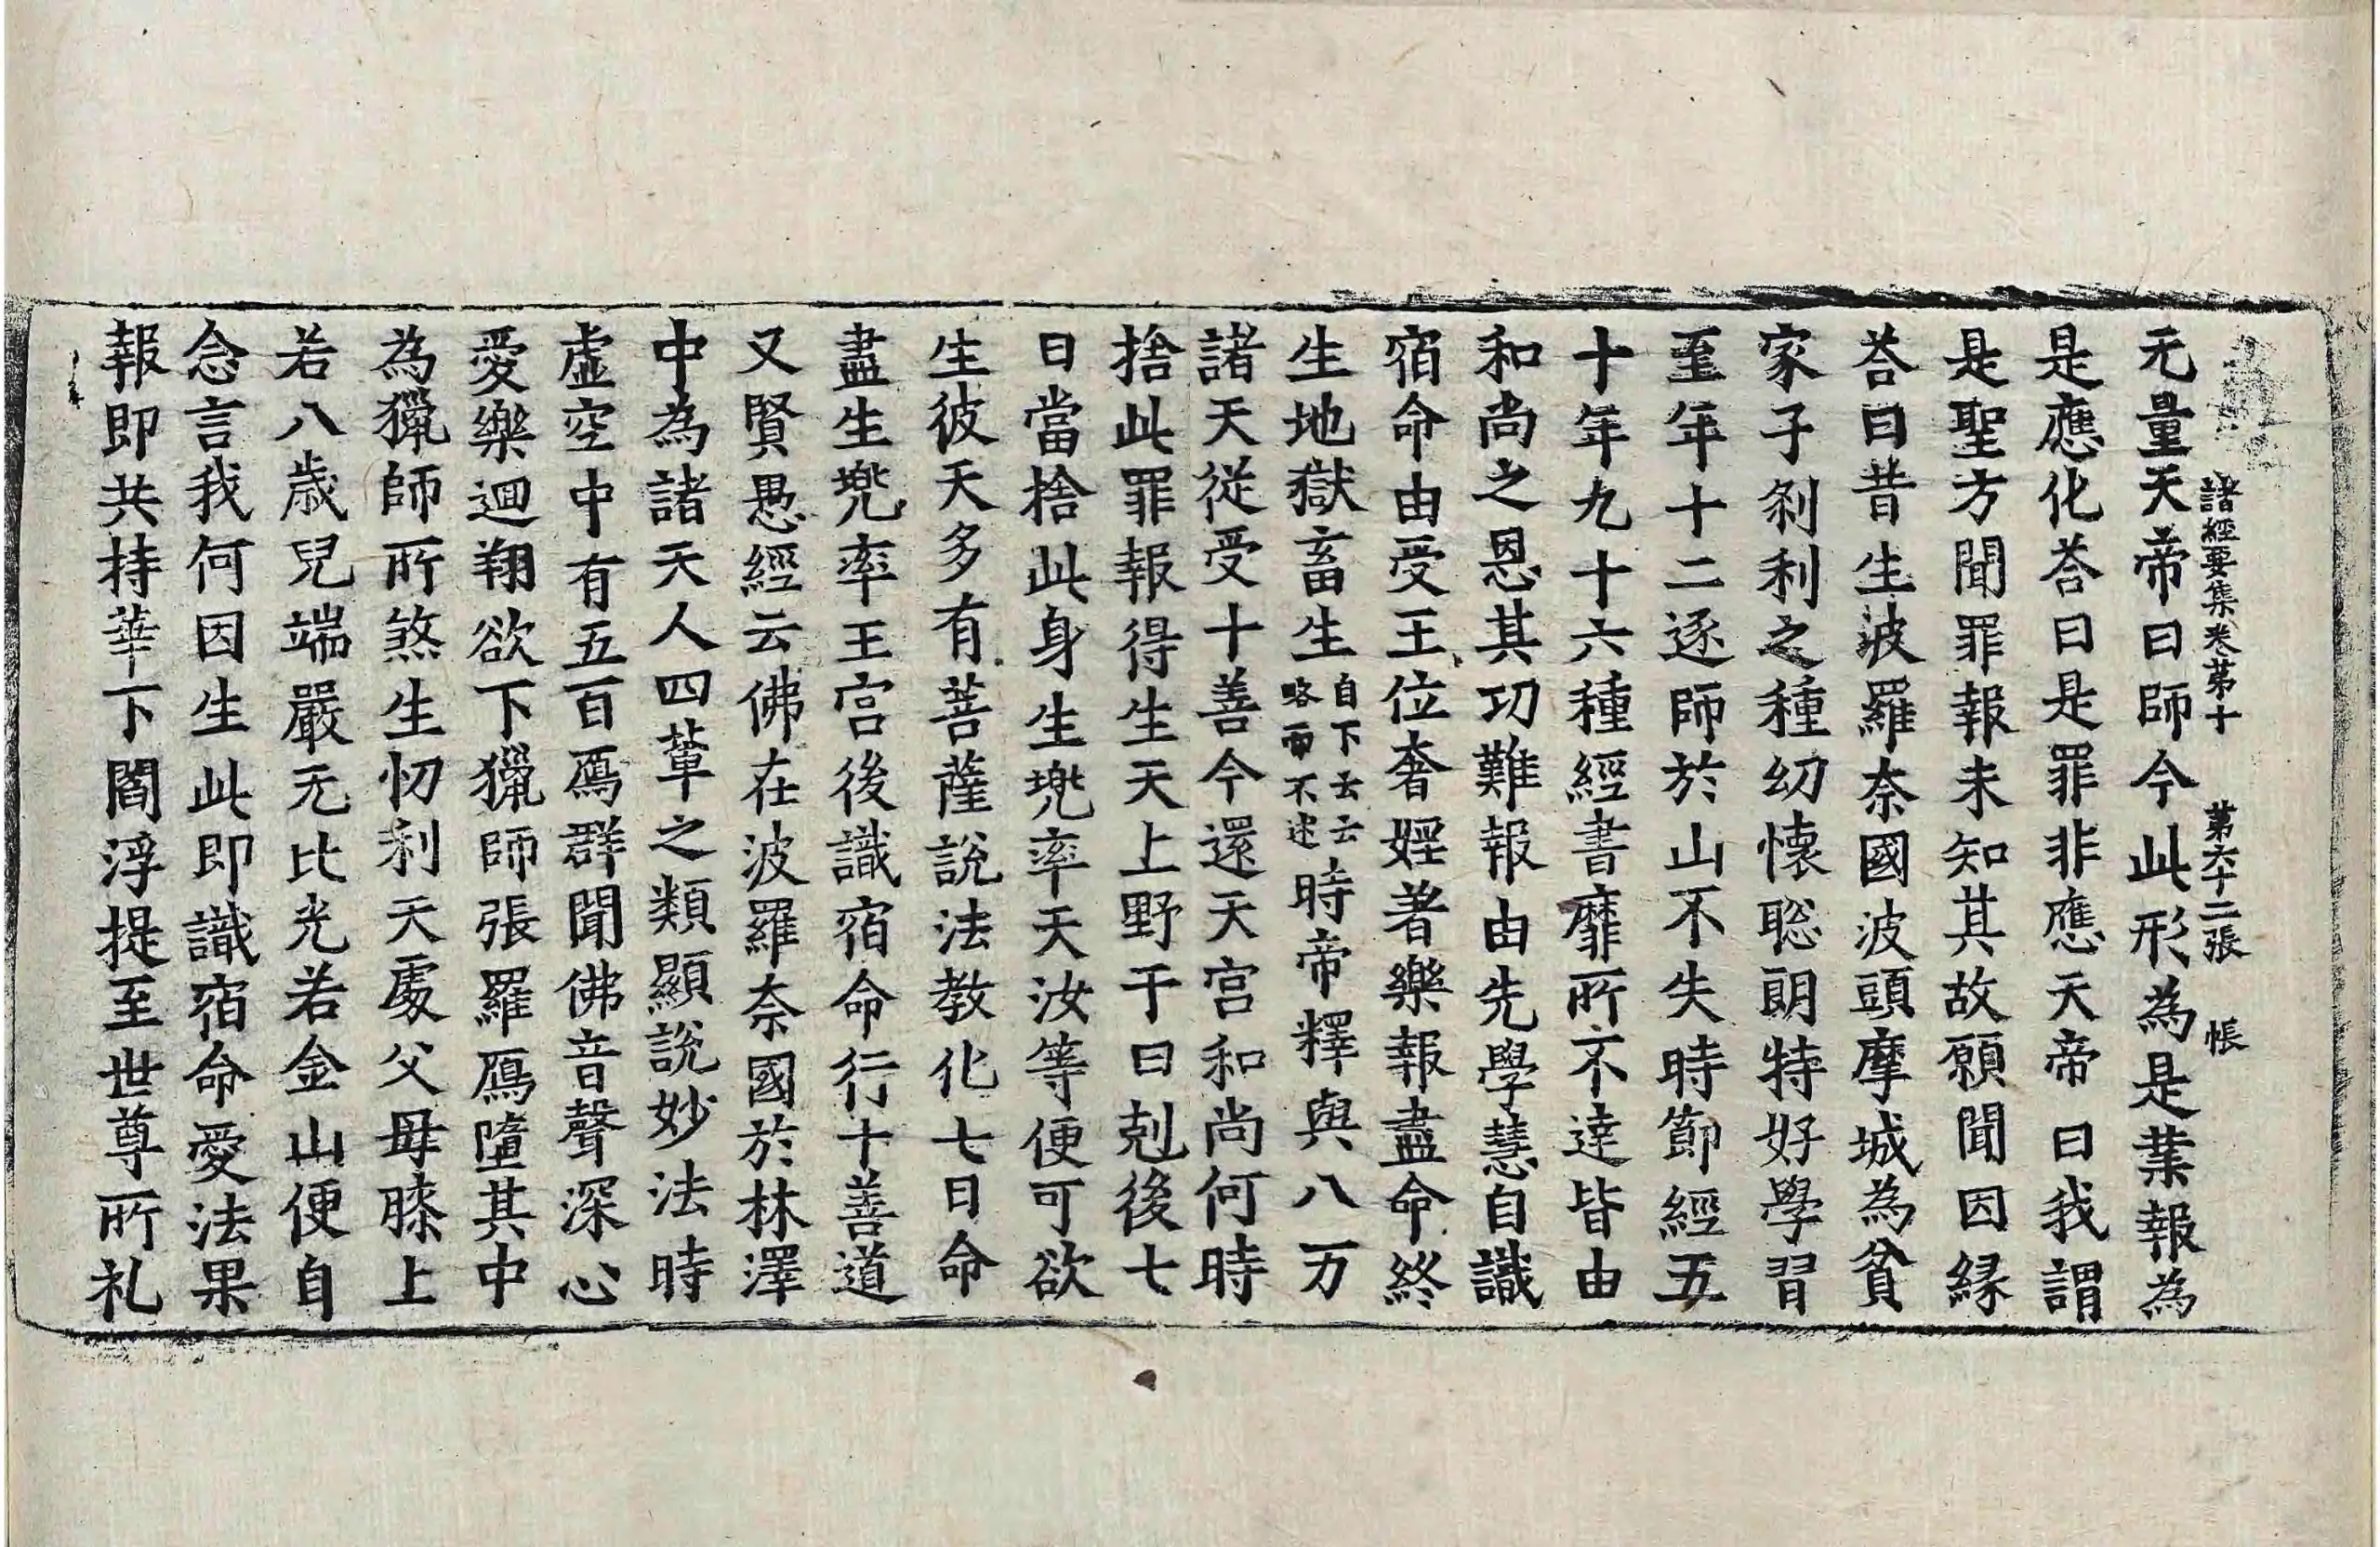 諸經要集卷第十　第六十二張　帳
无量天帝曰師今此形為是業報為
是應化荅曰是罪非應天帝曰我謂
是聖方聞罪報未知其故願聞因緣
荅曰昔生波羅奈國波頭摩城為貧
家子剎利之種幼懷聡朗特好學習
至年十二逐師於山不失時節經五
十年九十六種經書靡所不達皆由
和尚之恩其功難報由先學慧自識
宿命由受王位奢婬著樂報盡命終
生地獄畜生自下云云略而不述時帝釋與八万
諸天從受十善今還天宮和尚何時
捨此罪報得生天上野干曰剋後七
日當捨此身生兠率天汝等便可欲
生彼天多有菩薩說法教化七日命
盡生兠率王宮後識宿命行十善道
又賢愚經云佛在波羅奈國於林澤
中為諸天人四軰之類顯說妙法時
虛空中有五百鴈群聞佛音聲深心
愛樂迴翔欲下獵師張羅鴈墮其中
為獵師所煞生忉利天處父母膝上
若八歲兒端嚴无比光若金山便自
念言我何因生此即識宿命愛法果
報即共持華下閻浮提至世尊所礼